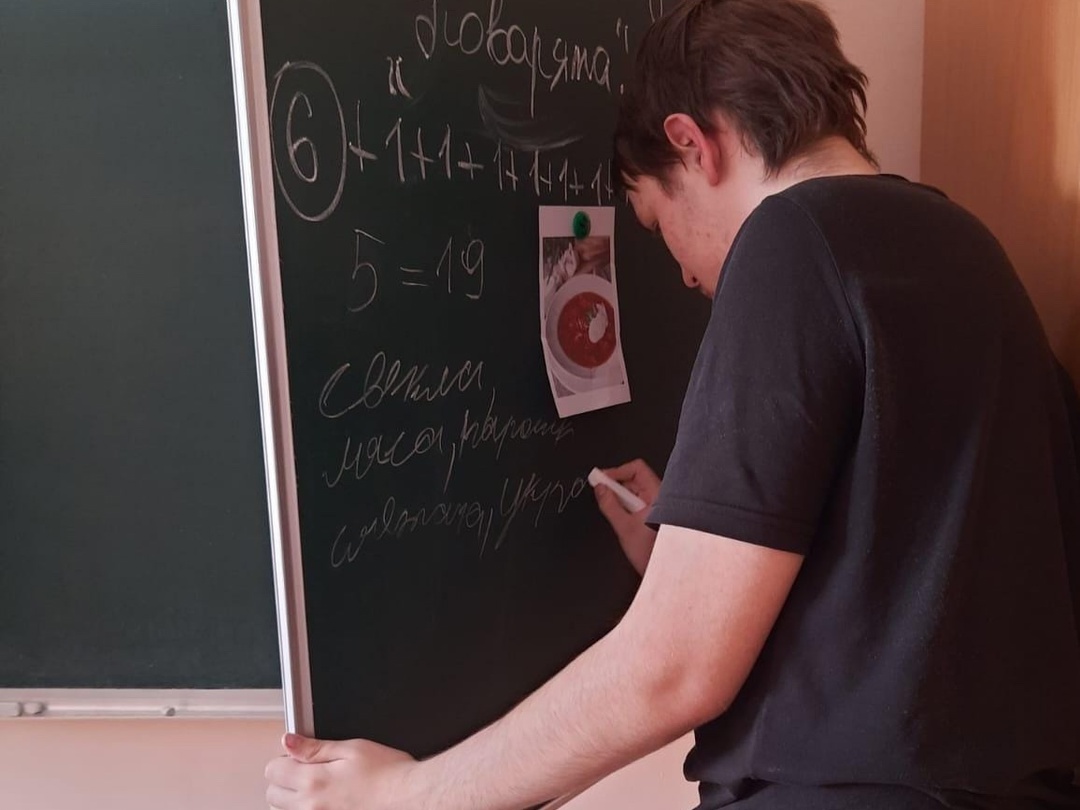 „Поварята"
6 + 1 + 1 + 1 + 1 + 1 + 1 +
5 = 19
свекла,
мяса, карошк
сметана, укро